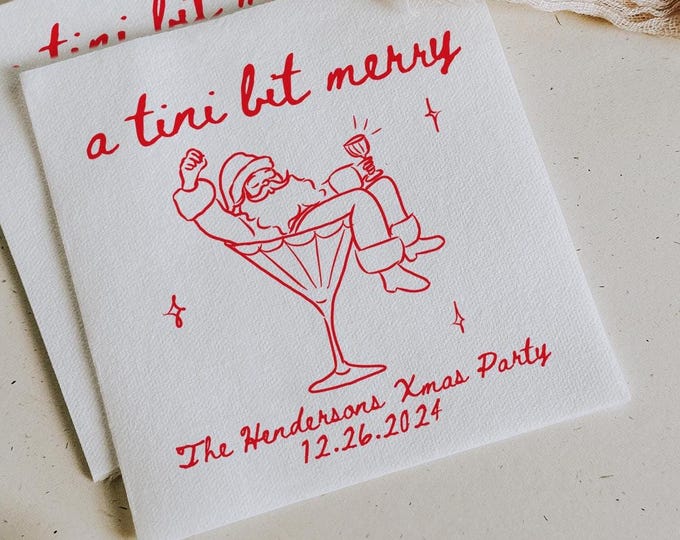 a tini bit m
a tini bit merry
The Hendersons Xmas Party
12.26.2024